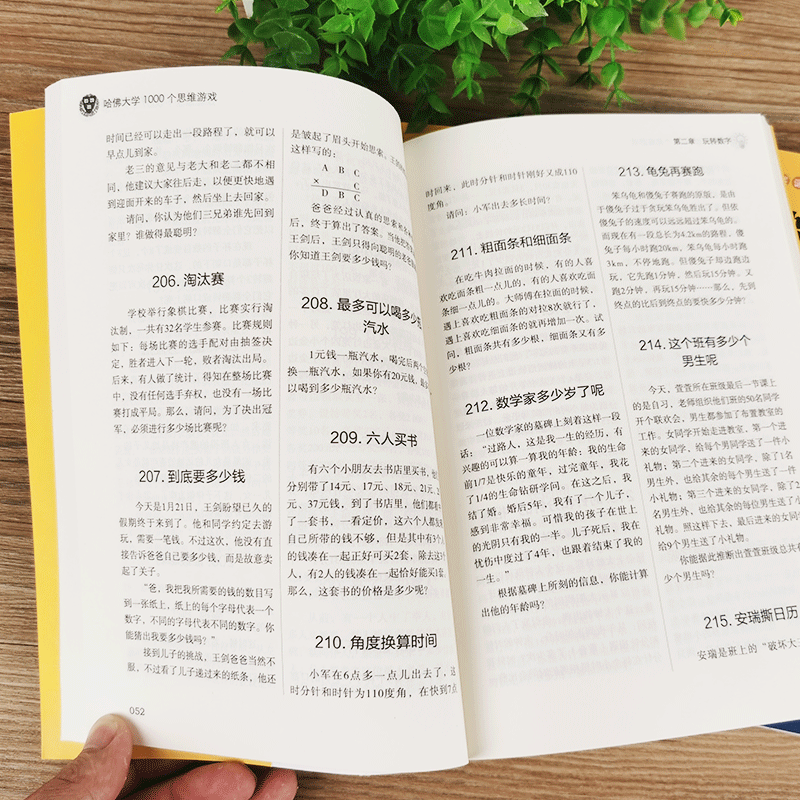 哈佛大学 1000 个思维游戏
时间已经可以走出一段路程了，就可以
早点儿到家。
老三的意见与老大和老二都不相
同，他建议大家往后走，以便更快地遇
到迎面开来的车子，然后坐上去回家。
请问，你认为他们三兄弟谁先回到
家里？谁做得最聪明？
206. 淘汰赛
学校举行象棋比赛，比赛实行淘
汰制，一共有32名学生参赛。比赛规则
如下：每场比赛的选手配对由抽签决
定，胜者进入下一轮，败者淘汰出局。
后来，有人做了统计，得知在整场比赛
中，没有任何选手弃权，也没有一场比
赛打成平局。那么，请问，为了决出冠
军，必须进行多少场比赛呢？
207. 到底要多少钱
今天是1月21日，王剑盼望已久的
假期终于来到了。他和同学约定去游
玩，需要一笔钱。不过这次，他没有直
接告诉爸爸自己要多少钱，而是故意卖
起了关子。
“爸，我把我所需要的钱的数目写
到一张纸上，纸上的每个字母代表一个
数字，不同的字母代表不同的数字。你
能猜出我要多少钱吗？”
接到儿子的挑战，王剑爸爸当然不
服，不过看了儿子递过来的纸条，他还
052
是皱起了眉头开始思索。王剑
这样写的：
A B C
× C
D B C
爸爸经过认真的思索和
后，终于算出了答案。当他把答
王剑后，王剑只得向聪明的老爸
你知道王剑要多少钱吗？
208. 最多可以喝多少
汽水
1元钱一瓶汽水，喝完后两个空
换一瓶汽水，如果你有20元钱，最
以喝到多少瓶汽水？
209. 六人买书
有六个小朋友去书店里买书，他
分别带了14元、17元、18元、21元、2
元、37元钱，到了书店里，他们都看
了一套书，一看定价，这六人都发
自己所带的钱不够，但是其中有3个
的钱凑在一起正好可买2套，除去这3
人，有2人的钱凑在一起恰好能买1套
那么，这套书的价格是多少呢？
210. 角度换算时间
小军在6点多一点儿出去了，这
时分针和时针为110度角，在快到7点
第二章 玩转数字
时回来，此时分针和时针刚好又成110
度角。
请问：小军出去多长时间？
211. 粗面条和细面条
在吃牛肉拉面的时候，有的人喜
欢吃面条粗一点儿的，有的人喜欢吃面
条细一点儿的。大师傅在拉面的时候，
遇上喜欢吃粗面条的对拉8次就行了，
遇上喜欢吃细面条的就再增加一次。试
问，粗面条共有多少根，细面条又有多
少根？
212. 数学家多少岁了呢
一位数学家的墓碑上刻着这样一段
话：“过路人，这是我一生的经历，有
兴趣的可以算一算我的年龄：我的生命
前1/7是快乐的童年，过完童年，我花
了1/4的生命钻研学问。在这之后，我
结了婚。婚后5年，我有了一个儿子，
感到非常幸福。可惜我的孩子在世上
的光阴只有我的一半。儿子死后，我在
忧伤中度过了4年，也跟着结束了我的
一生。”
根据墓碑上所刻的信息，你能计算
出他的年龄吗？
213. 龟兔再赛跑
笨乌龟和傻兔子赛跑的原版，是由
于傻兔子过于贪玩笨乌龟胜出了。但依
傻兔子的速度可以远远超过笨乌龟的。
而现在有一段总长为4.2km的路程，傻
兔子每小时跑20km，笨乌龟每小时跑
3km，不停地跑。但傻兔子却边跑边
玩，它先跑1分钟，然后玩15分钟。又
跑2分钟，再玩15分钟……那么，先到
终点的比后到终点的要快多少分钟？
214. 这个班有多少个
男生呢
今天，萱萱所在班级最后一节课上
的是自习，老师组织他们班的50名同学
开个联欢会，男生都参加了布置教室的
工作。女同学开始走进教室，第一个进
来的女同学，给每个男同学送了一件小
礼物；第二个进来的女同学，除了1名
男生外，也给其余的每个男生送了一件
小礼物；第三个进来的女同学，除了2
名男生外，也给其余的每位男生送了小
礼物。照这样下去，最后进来的女同学
给9个男生送了小礼物。
你能据此推断出萱萱班级总共有
少个男生吗？
215. 安瑞撕日历
安瑞是班上的“破坏大王